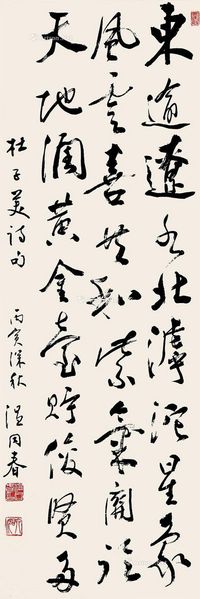 東逾遼水北滹沱星象
風雲喜共和紫氣關臨
天地闊黄金臺貯俊賢多
杜子美詩句
丙寅深秋 溫同春